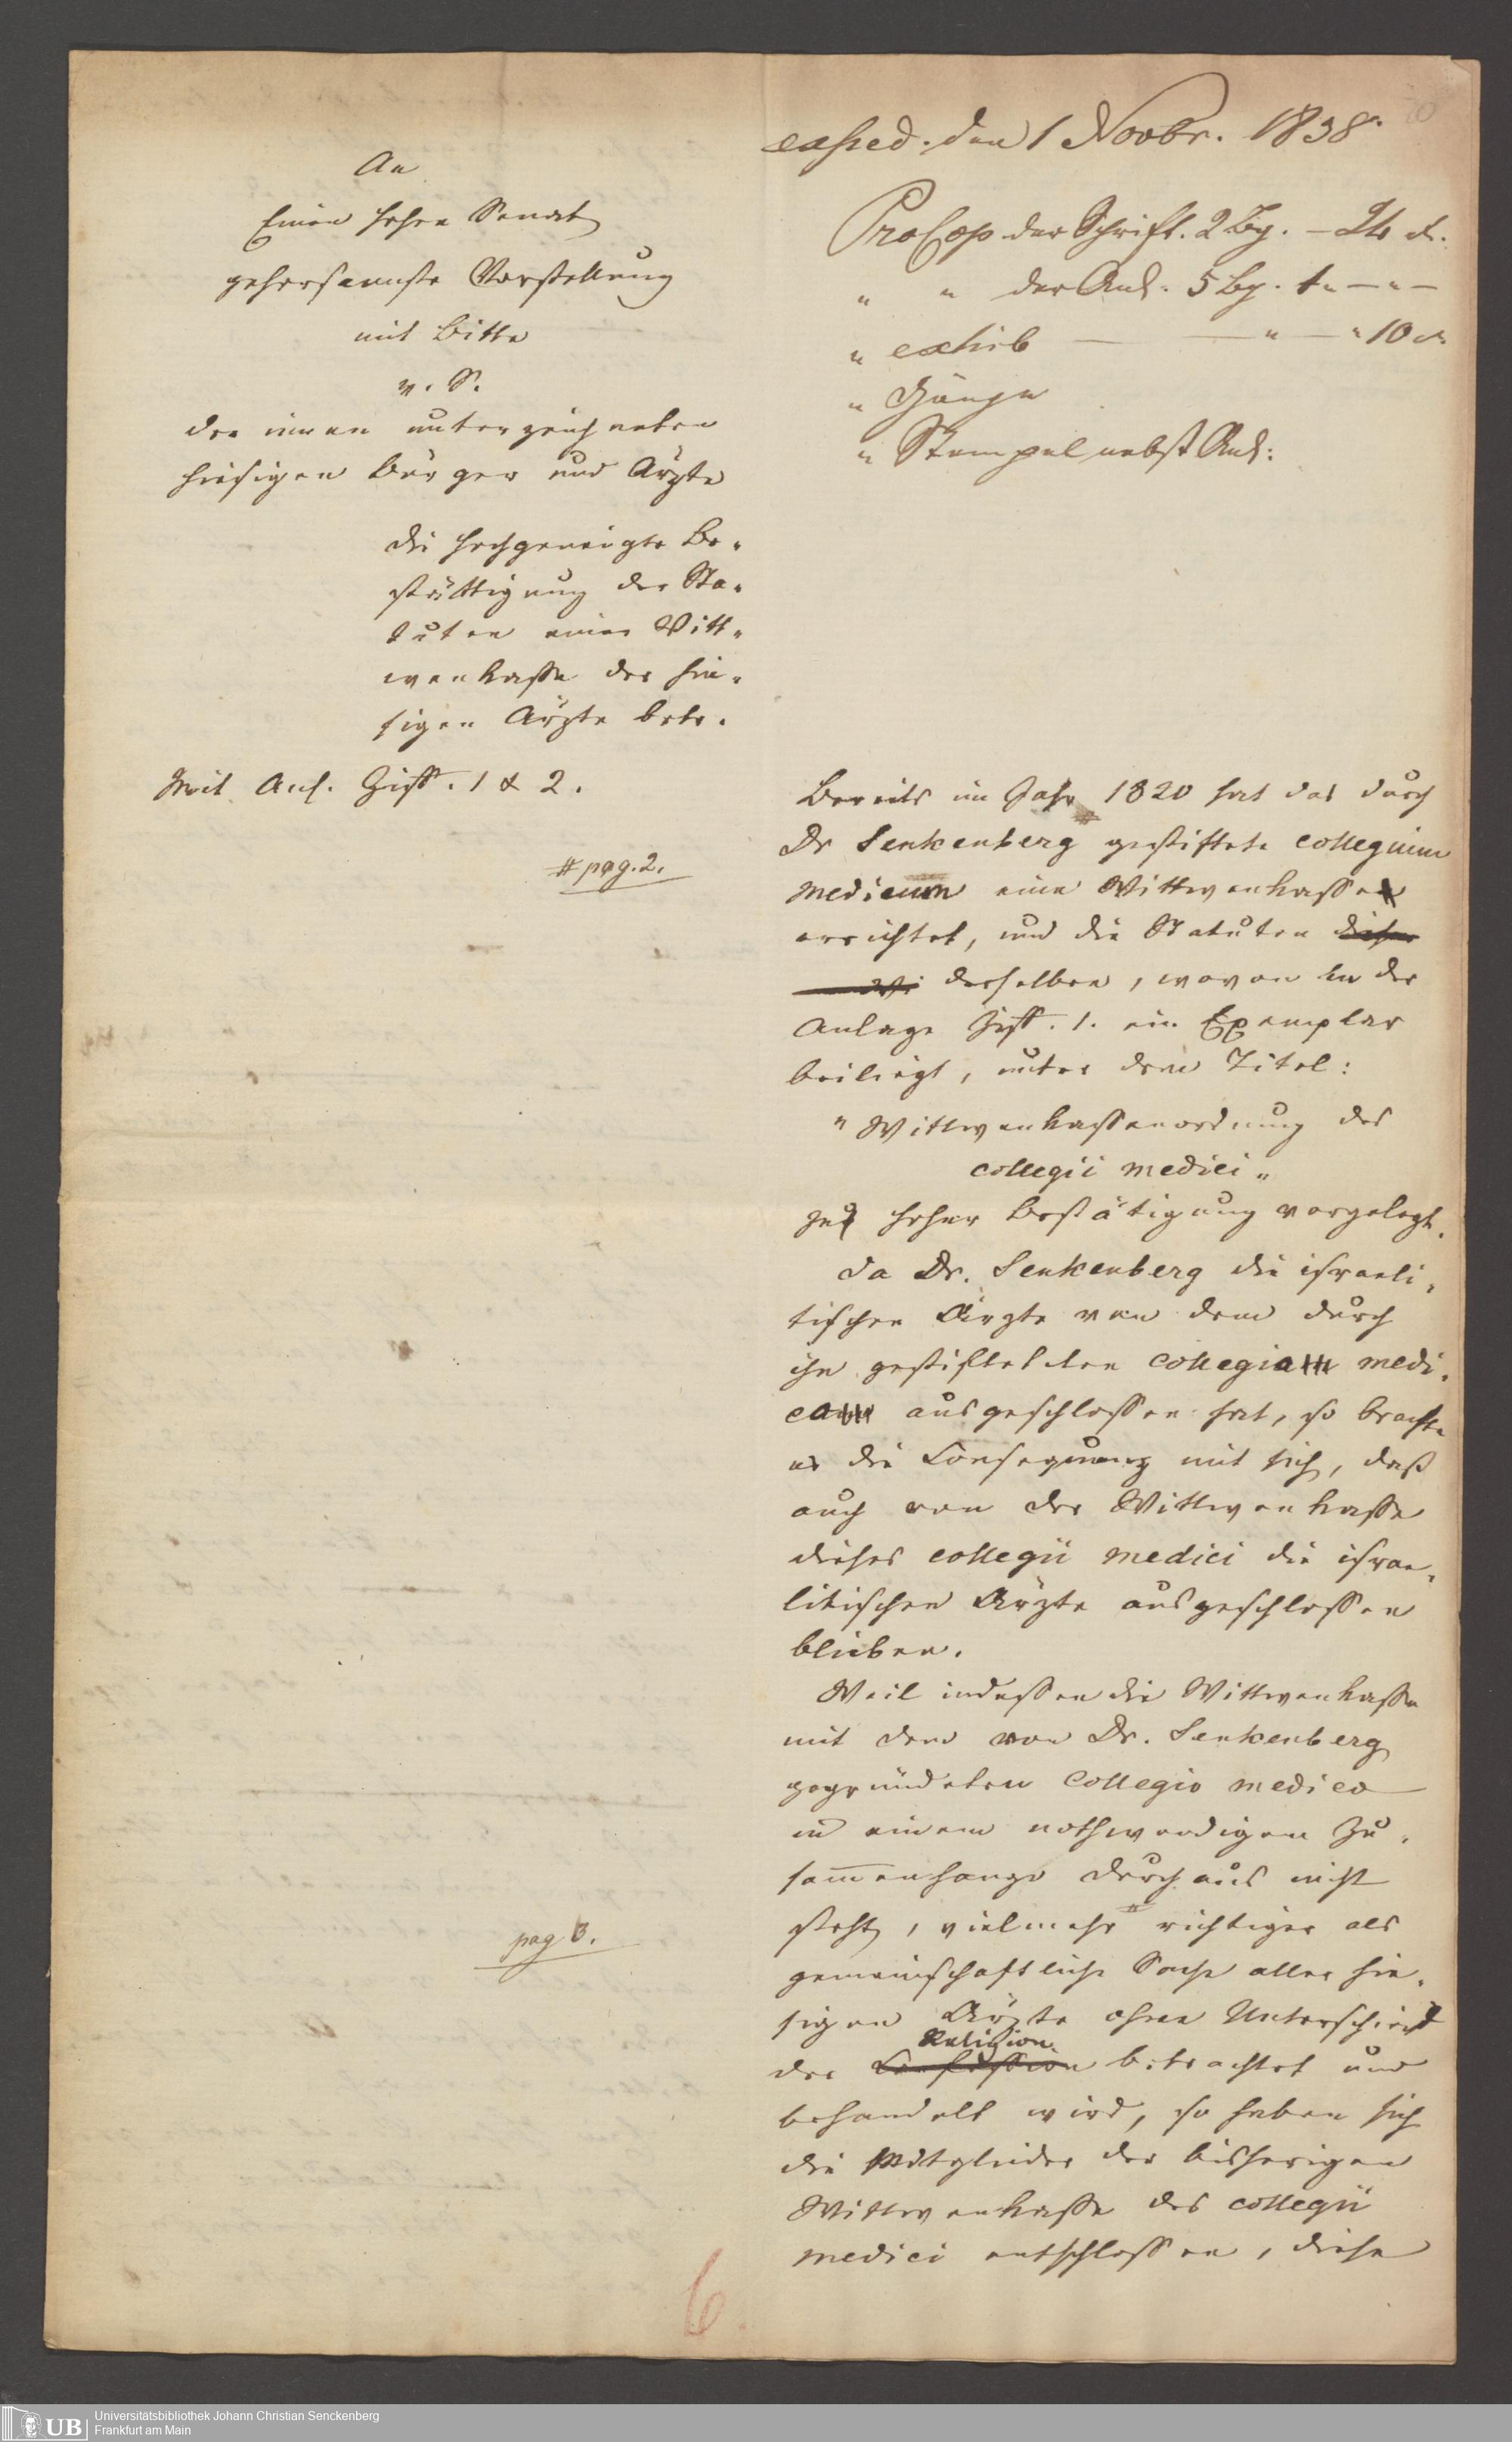 An
Einen hohen Senat
gehorsamste Vorstellung
mit Bitte
v. S.
der innen unterzeichneten
hiesigen Bürger und Ärzte
die hochgeneigte Be-
stättigung der Sta-
tuten einer Witt-
wenkasse der hie-
sigen Ärzte betr.
Mit Anl. Ziff. 1 & 2.
# pag. 2.
pag 3.
6
exped. den 1 Novbr. 1838.
Pro Cop der Schrift. 2 Bg. — 24 x.
" " der Anl. 5 Bg. 1 " — " —
" exhib — — " — " 10 x.
" Gänge
" Stempel nebst Anl:
Bereits im Jahr 1820 hat das durch
Dr Senkenberg gestiftete collegium
medicum eine Wittwenkasse
errichtet, und die Statuten dieser
derselben, wovon in der
Anlage Ziff. 1. ein Exemplar
beiliegt, unter dem Titel:
"Wittwenkassenordnung des
collegii medici"
zu hoher Bestätigung vorgelegt.
Da Dr. Senkenberg die israeli-
tischen Ärzte von dem durch
ihn gestifteten collegio medi-
co ausgeschlossen hat, so brachte
es die Consequenz mit sich, daß
auch von der Wittwenkasse
dieses collegii medici die israe-
litischen Ärzte ausgeschlossen
blieben.
Weil indessen die Wittwenkasse
mit dem von Dr. Senkenberg
gegründeten Collegio medico
in einem nothwendigen Zu-
sammenhange durchaus nicht
steht, vielmehr # richtiger als
gemeinschaftliche Sache aller hie-
sigen Ärzte ohne Unterschied
Religion
der Confession betrachtet und
behandelt wird, so haben sich
die Mitglieder der bisherigen
Wittwenkasse des collegii
medici entschlossen, diese
UB
Universitätsbibliothek Johann Christian Senckenberg
Frankfurt am Main